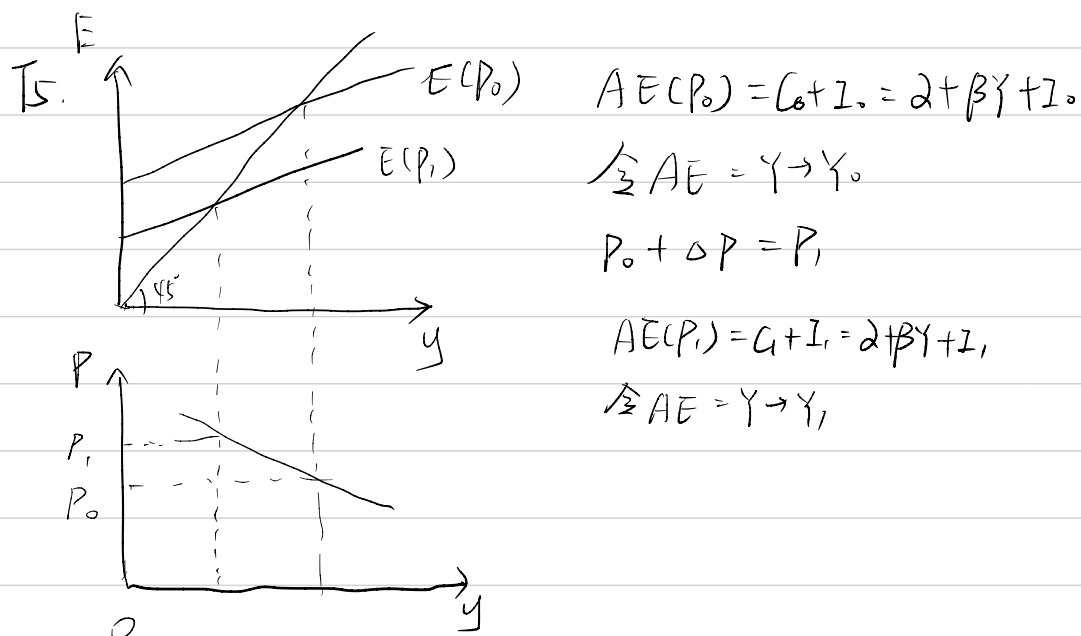 E
T5.
E(P₀)
E(P₁)
45°
y
P
P₁
P₀
y
O
AE(P₀) = C₀+I₀ = α+βY+I₀
令AE = Y→Y₀
P₀ + △P = P₁
AE(P₁) = C₁+I₁ = α+βY+I₁
令AE = Y→Y₁